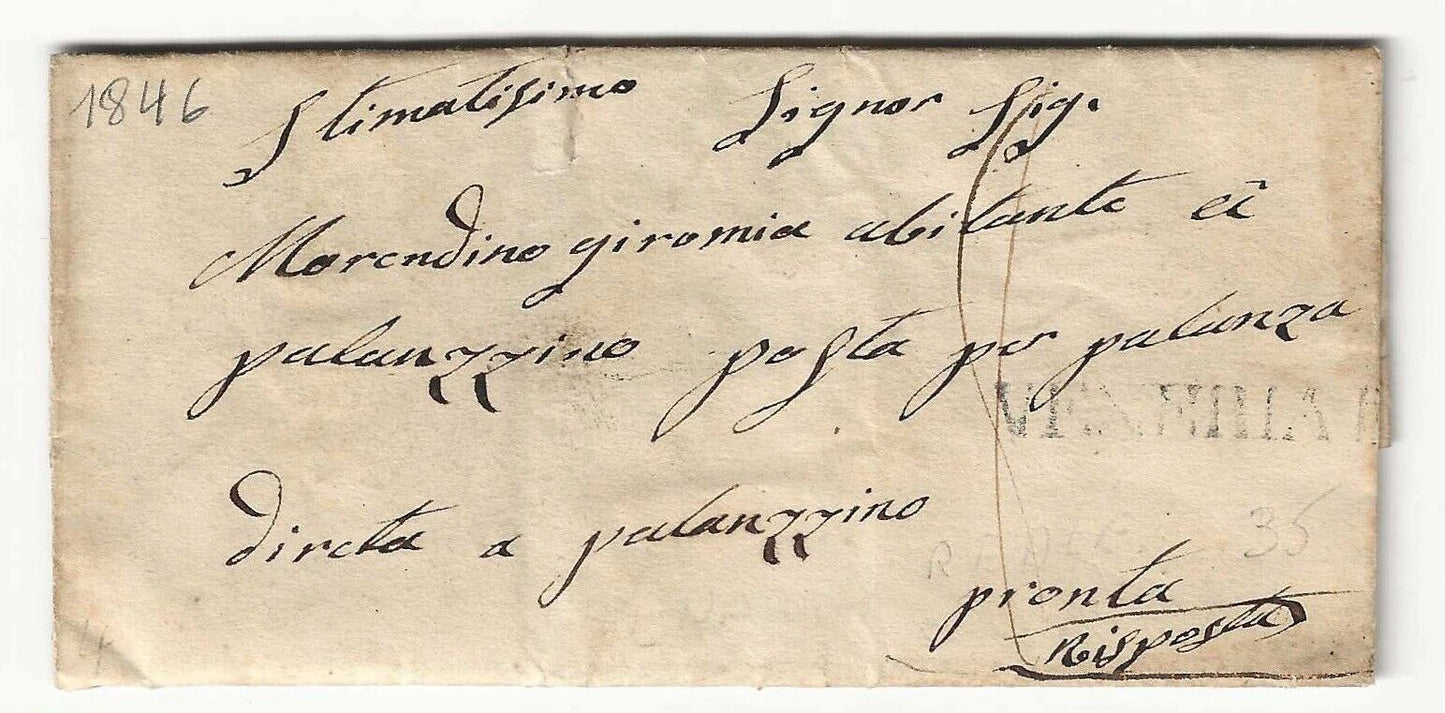 1846
Stimatisimo Signor Sig.
Morendino giromia abitante à
palanzzino posta per palanza
direta a palanzzino
35
pronta
Risposta
4